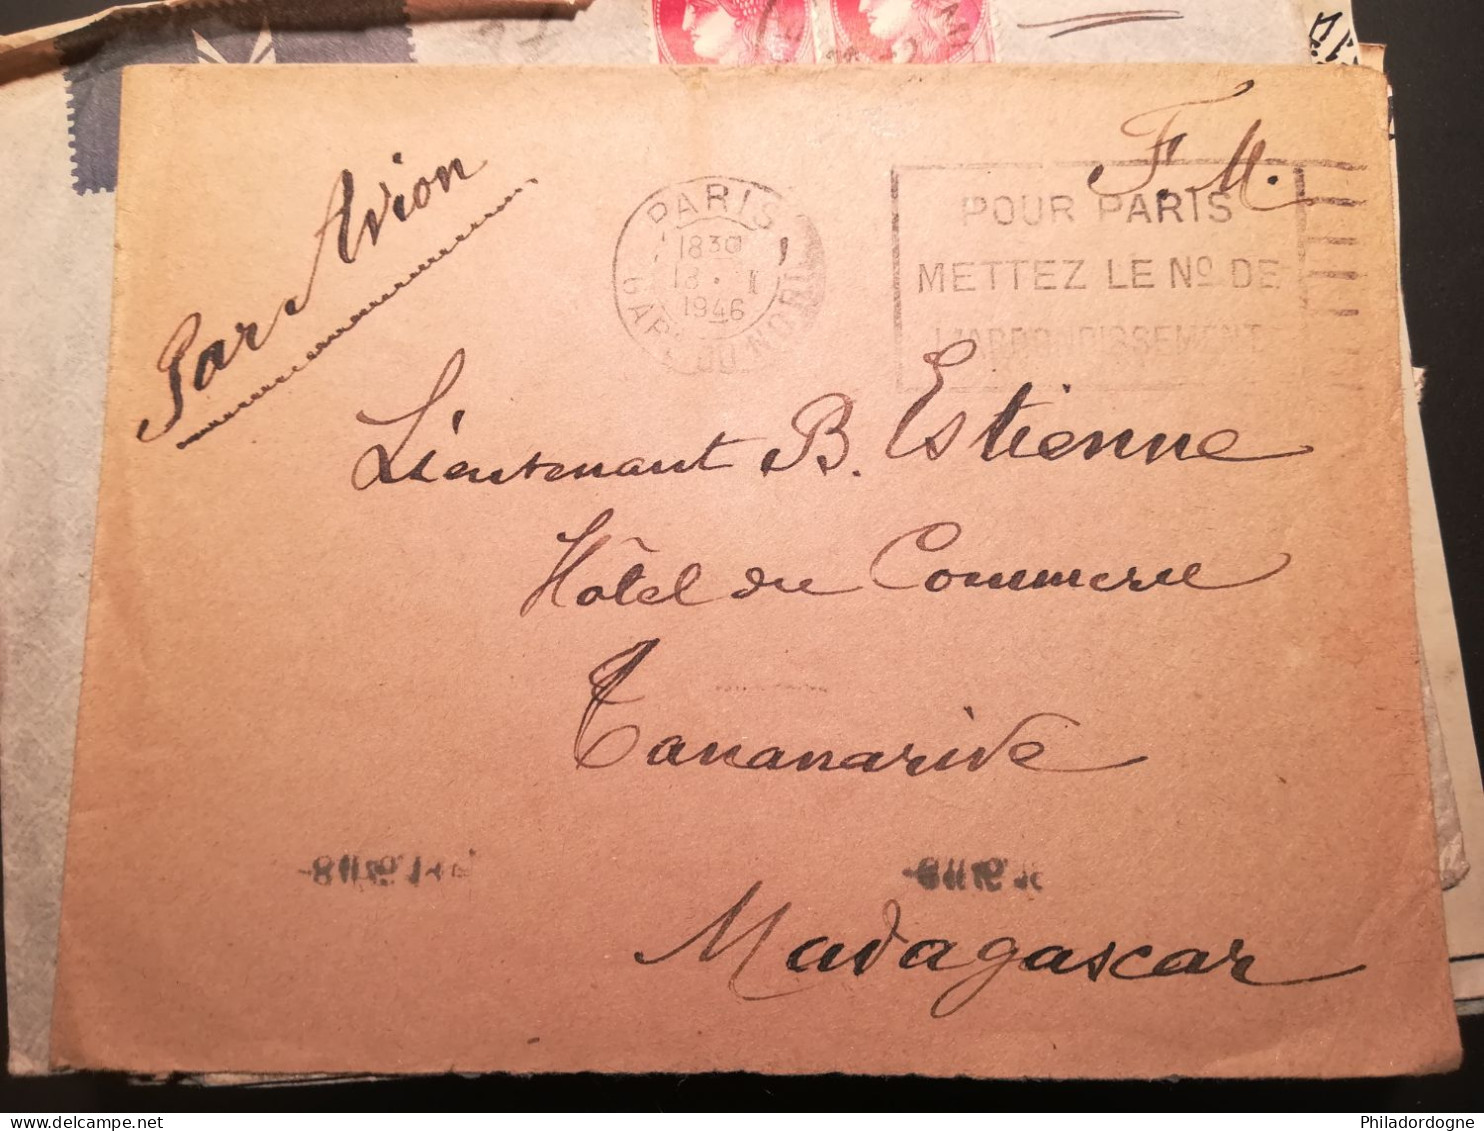 F.M.
Par Avion
PARIS
18 30
18 · I
1946
GARE DU NORD
POUR PARIS
METTEZ LE Nº DE
L'ARRONDISSEMENT
Lieutenant B. Estienne
Hôtel du Commerce
Tananarive
Madagascar
Philadordogne